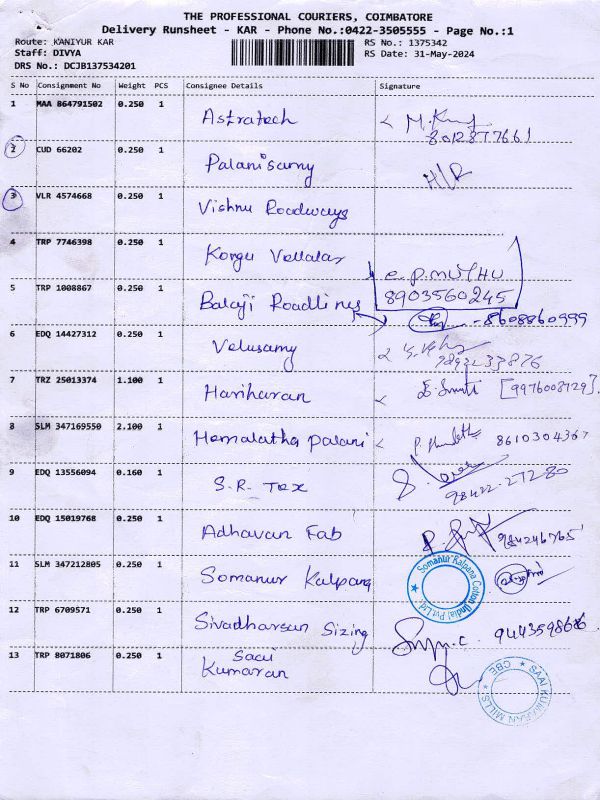 THE PROFESSIONAL COURIERS, COIMBATORE
Delivery Runsheet - KAR - Phone No.:0422-3505555 - Page No.:1
Route: KANIYUR KAR
RS No.: 1375342
Staff: DIVYA
RS Date: 31-May-2024
DRS No.: DCJB137534201
S No Consignment No Weight PCS Consignee Details Signature
1 MAA 864791502 0.250 1 Astratech
8012877661
2 CUD 66202 0.250 1 Palanisamy
3 VLR 4574668 0.250 1 Vishnu Roadways
4 TRP 7746398 0.250 1 Kongu Vellalar
e.p.MUTHU
8903560245
5 TRP 1008867 0.250 1 Balaji Roadlines
8608860999
6 EDQ 14427312 0.250 1 Velusamy
7 TRZ 25013374 1.100 1 Hariharan [9976008729]
8 SLM 347169550 2.100 1 Hemalatha Palani 8610304367
9 EDQ 13556094 0.160 1 S.R. Tex
98422-27280
10 EDQ 15019768 0.250 1 Adhavan Fab
11 SLM 347212805 0.250 1 Somanur Kalpana
Somanur Kalpana Cotton (India) Pvt Ltd.
12 TRP 6709571 0.250 1 Sivadharsan Sizing
13 TRP 8071806 0.250 1 Saai
Kumaran
SAAI KUMARAN MILLS
CBE